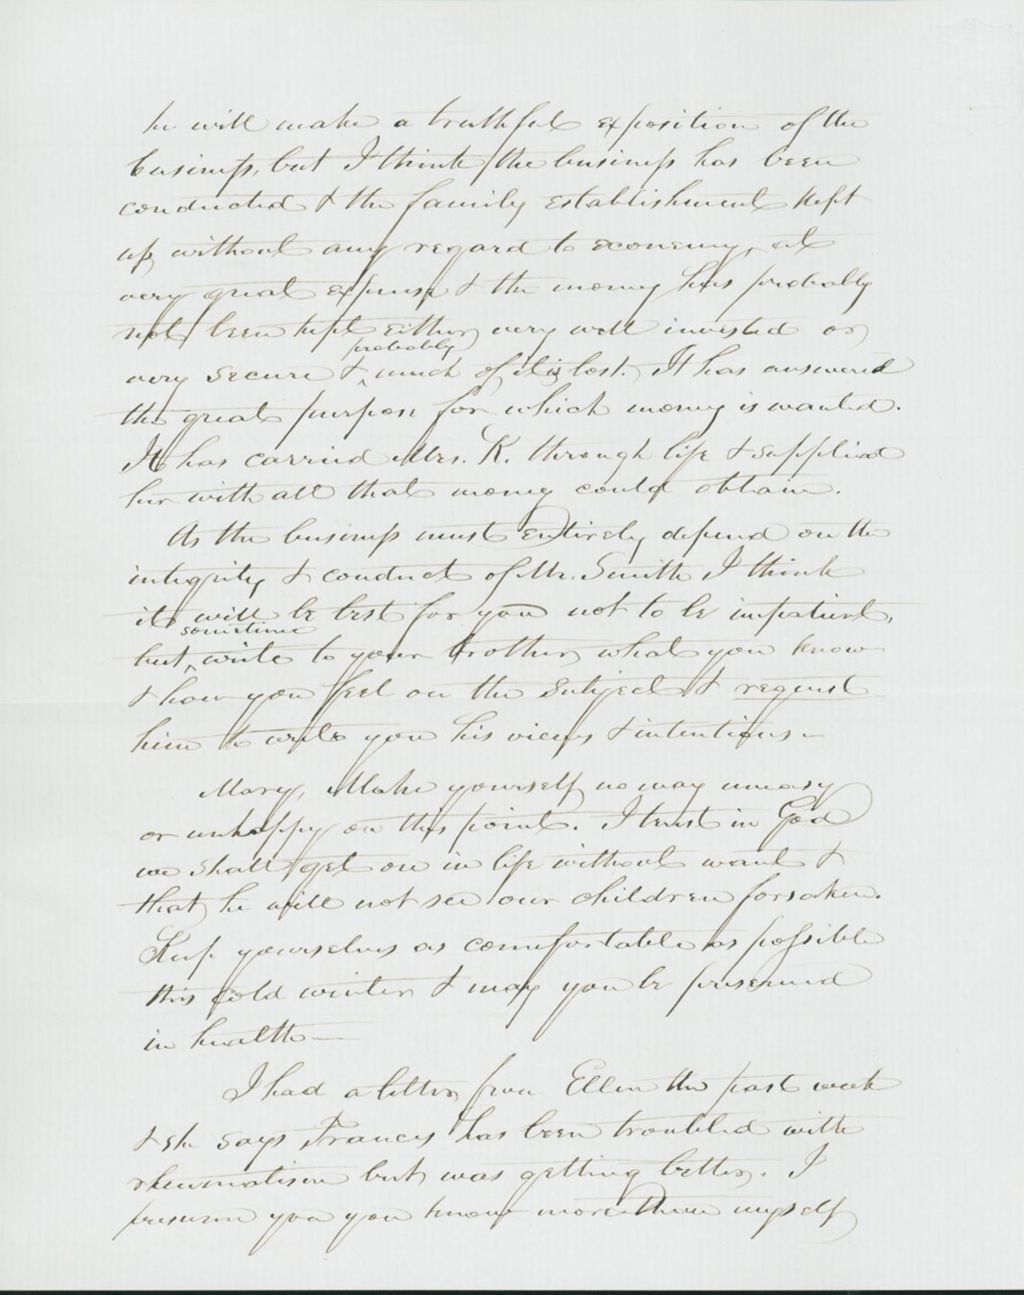 he will make a truthful exposition of the
business, but I think the business has been
conducted & the family establishment kept
up, without any regard to economy, at
very great expense & the money has probably
not been kept either very well invested or
very secure & probably much of it is lost. It has answered
the great purpose for which money is wanted.
It has carried Mrs. K. through life & supplied
her with all that money could obtain.
As the business must entirely depend on the
integrity & conduct of Mr. Smith I think
it will be best for you not to be impatient,
but sometime write to your brother what you know
& how you feel on the subject & request
him to write you his views & intentions –
Mary, Make yourself no way uneasy
or unhappy on this point. I trust in God
we shall get on in life without want &
that he will not see our children forsaken.
Keep yourselves as comfortable as possible
this cold winter & may you be preserved
in health —
I had a letter from Ellen the past week
& she says Frances has been troubled with
rheumatism but was getting better. I
presume you you know more than myself